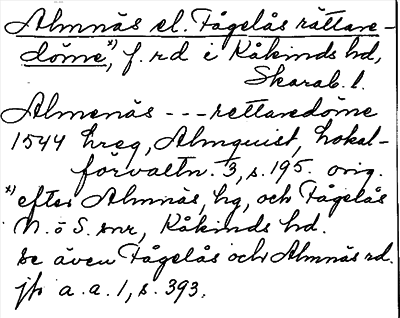 Almnäs el. Fågelås rättare-
döme,*) f. rd i Kåkinds hd,
Skarab. l.
Almenäs --- rettaredöme
1544 hreg, Almquist, Lokal-
förvaltn. 3, s. 195. orig.
*) efter Almnäs, hg, och Fågelås
N. o S. snr, Kåkinds hd.
se även Fågelås och Almnäs rd.
jfr a.a. 1, s. 393.